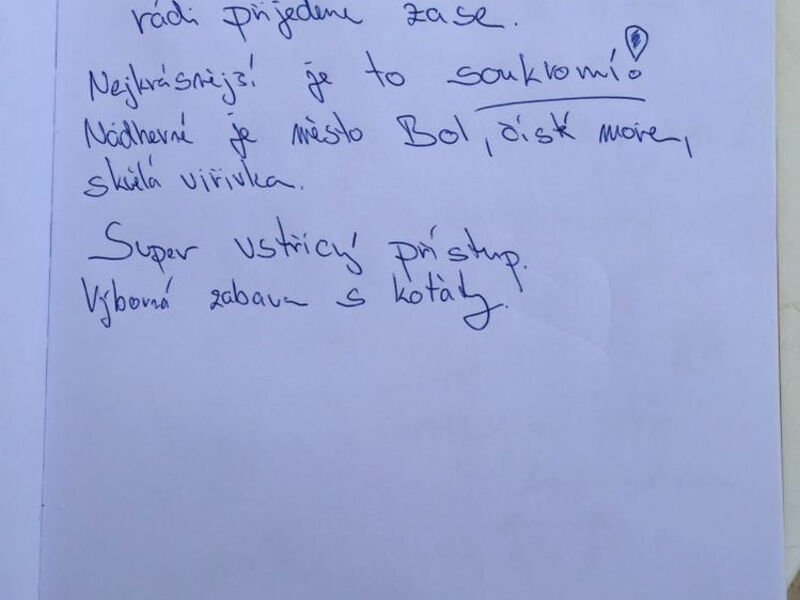 rádi přijedeme zase.
Nejkrásnější je to soukromí!
Nádherné je město Bol, čisté moře,
skvělá vířivka.
Super vstřícný přístup.
Výborná zábava s koťátky.